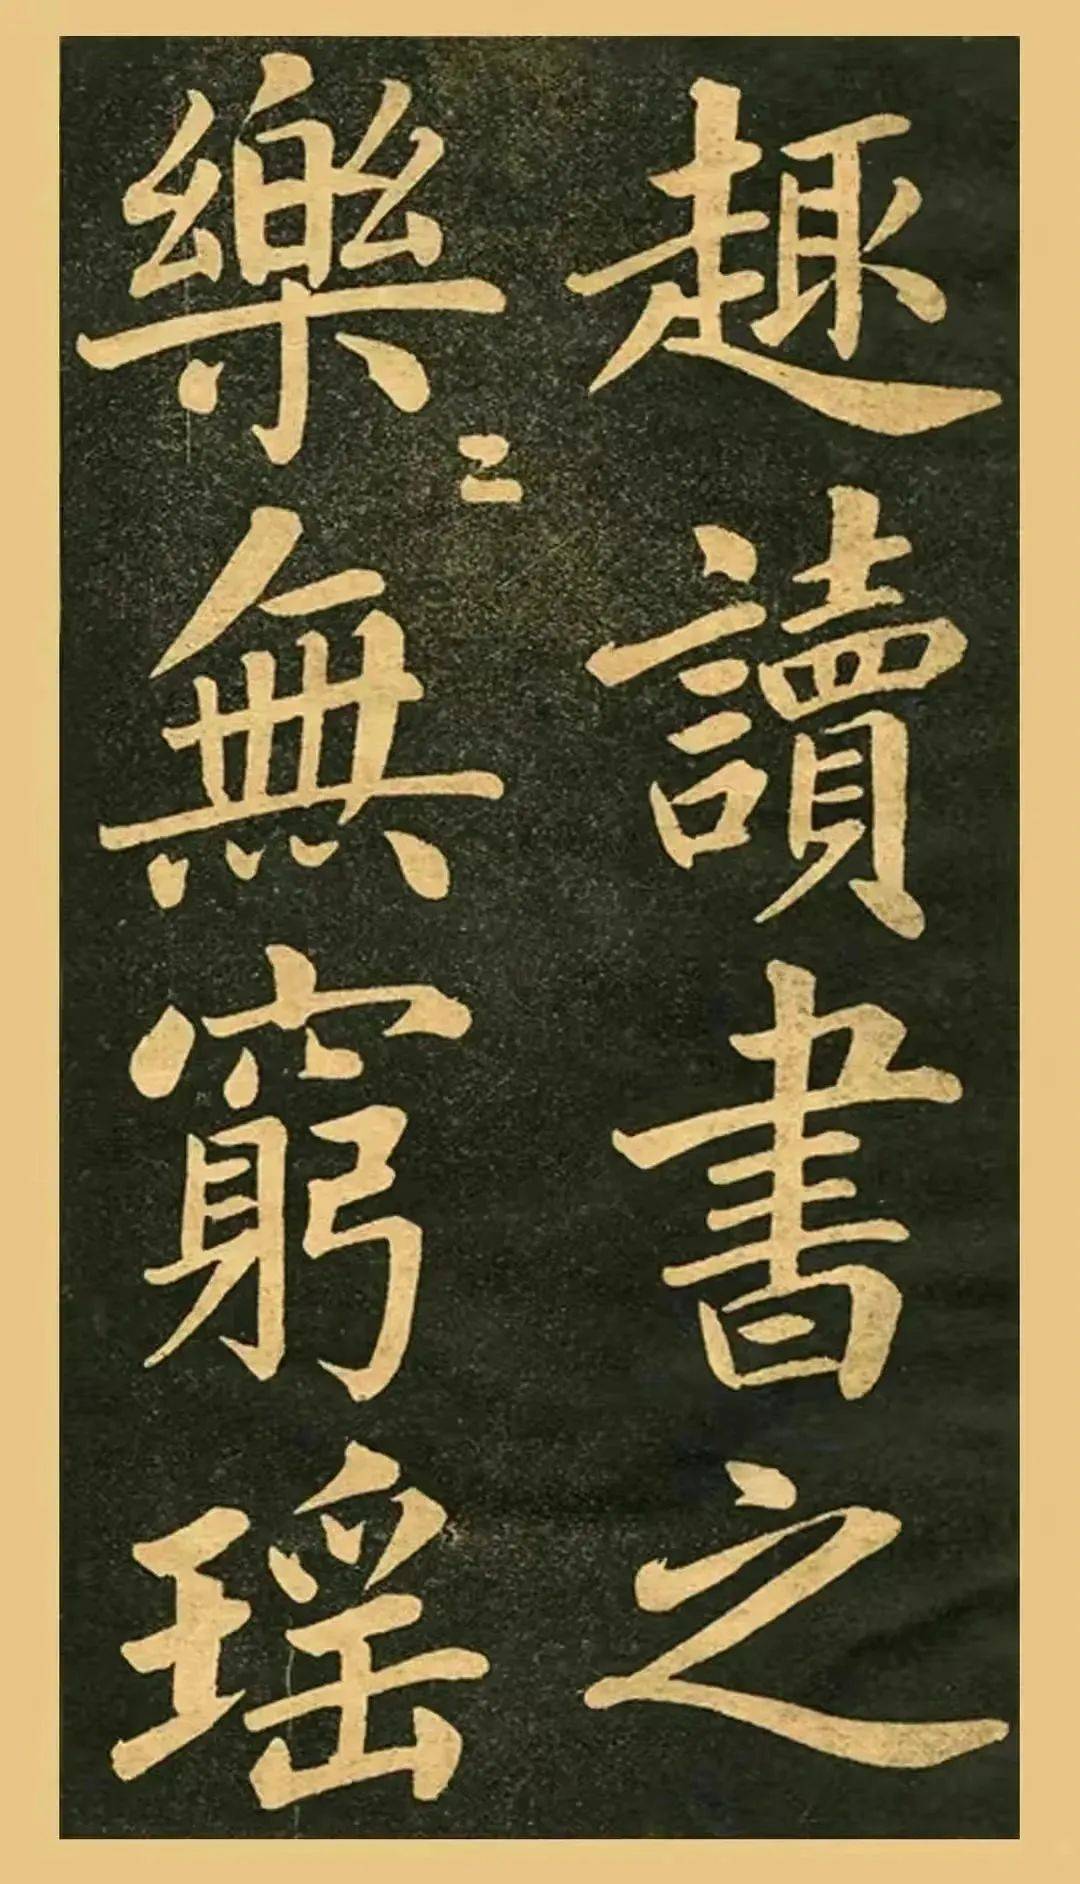 趣讀書之
樂〻無窮瑶